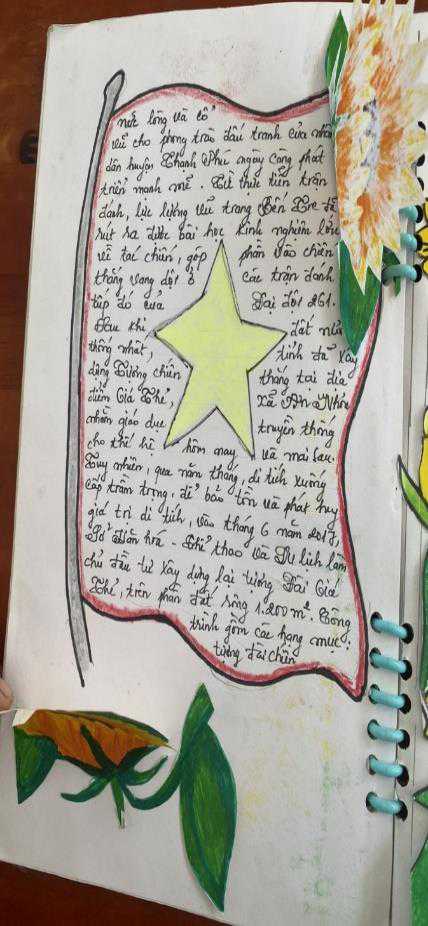 nức lòng và cổ
vũ cho phong trào đấu tranh của nhân
dân huyện Thạnh Phú ngày càng phát
triển mạnh mẽ. Từ thực tiễn trận
đánh, lực lượng vũ trang Bến Tre đã
rút ra được bài học kinh nghiệm lớn
về tác chiến, góp phần vào chiến
thắng vang dội ở các trận đánh
tiếp đó của Đại đội 261.
Sau khi đất nước
thống nhất, tỉnh đã xây
dựng Tượng chiến thắng tại địa
điểm Giá Thẻ, xã An Nhơn
nhằm giáo dục truyền thống
cho thế hệ hôm nay và mai sau.
Tuy nhiên, qua năm tháng, di tích xuống
cấp trầm trọng, để bảo tồn và phát huy
giá trị di tích, vào tháng 6 năm 2017,
Sở Văn hóa - Thể thao và Du lịch làm
chủ đầu tư xây dựng lại tượng đài Giá
Thẻ, trên phần đất rộng 1.200 m². Công
trình gồm các hạng mục:
tượng đài chiến